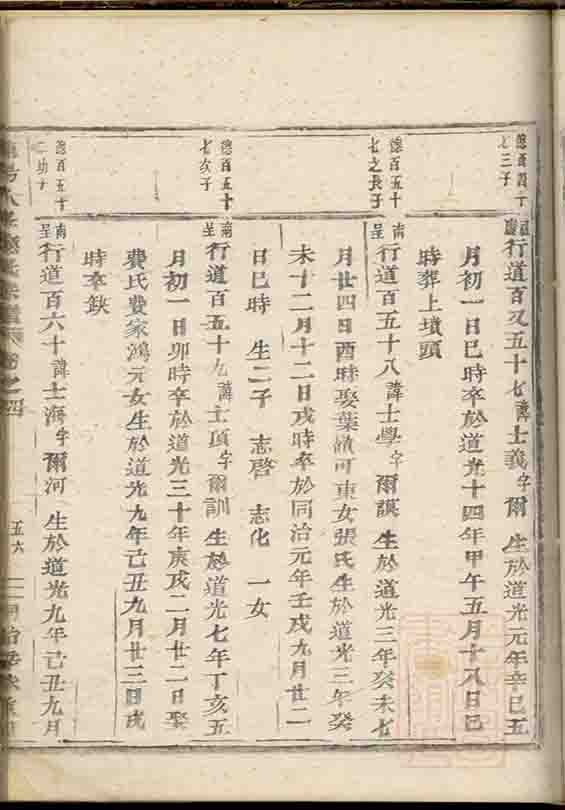 德百四十
七三子
行道百又五十七諱士義字爾 生於道光元年辛巳五
月初一日巳時卒於道光十四年甲午五月十八日巳
時葬上墳頭
德百五十
七之長子
南呈
行道百五十八諱士學字爾謨 生於道光三年癸未七
月廿四日酉時娶葉 可東女張氏生於道光三年癸
未十二月十二日戌時卒於同治元年壬戌九月廿二
日巳時 生二子 志啓 志化 一女
德百五十
七次子
南呈
行道百五十九諱士頂字爾訓 生於道光七年丁亥五
月初一日卯時卒於道光三十年庚戌二月廿二日娶
費氏費家鴻元女生於道光九年己丑九月廿三日戌
時卒缺
德百五十
二幼子
南呈
行道百六十諱士海字爾河 生於道光九年己丑九月
卷之四
五六